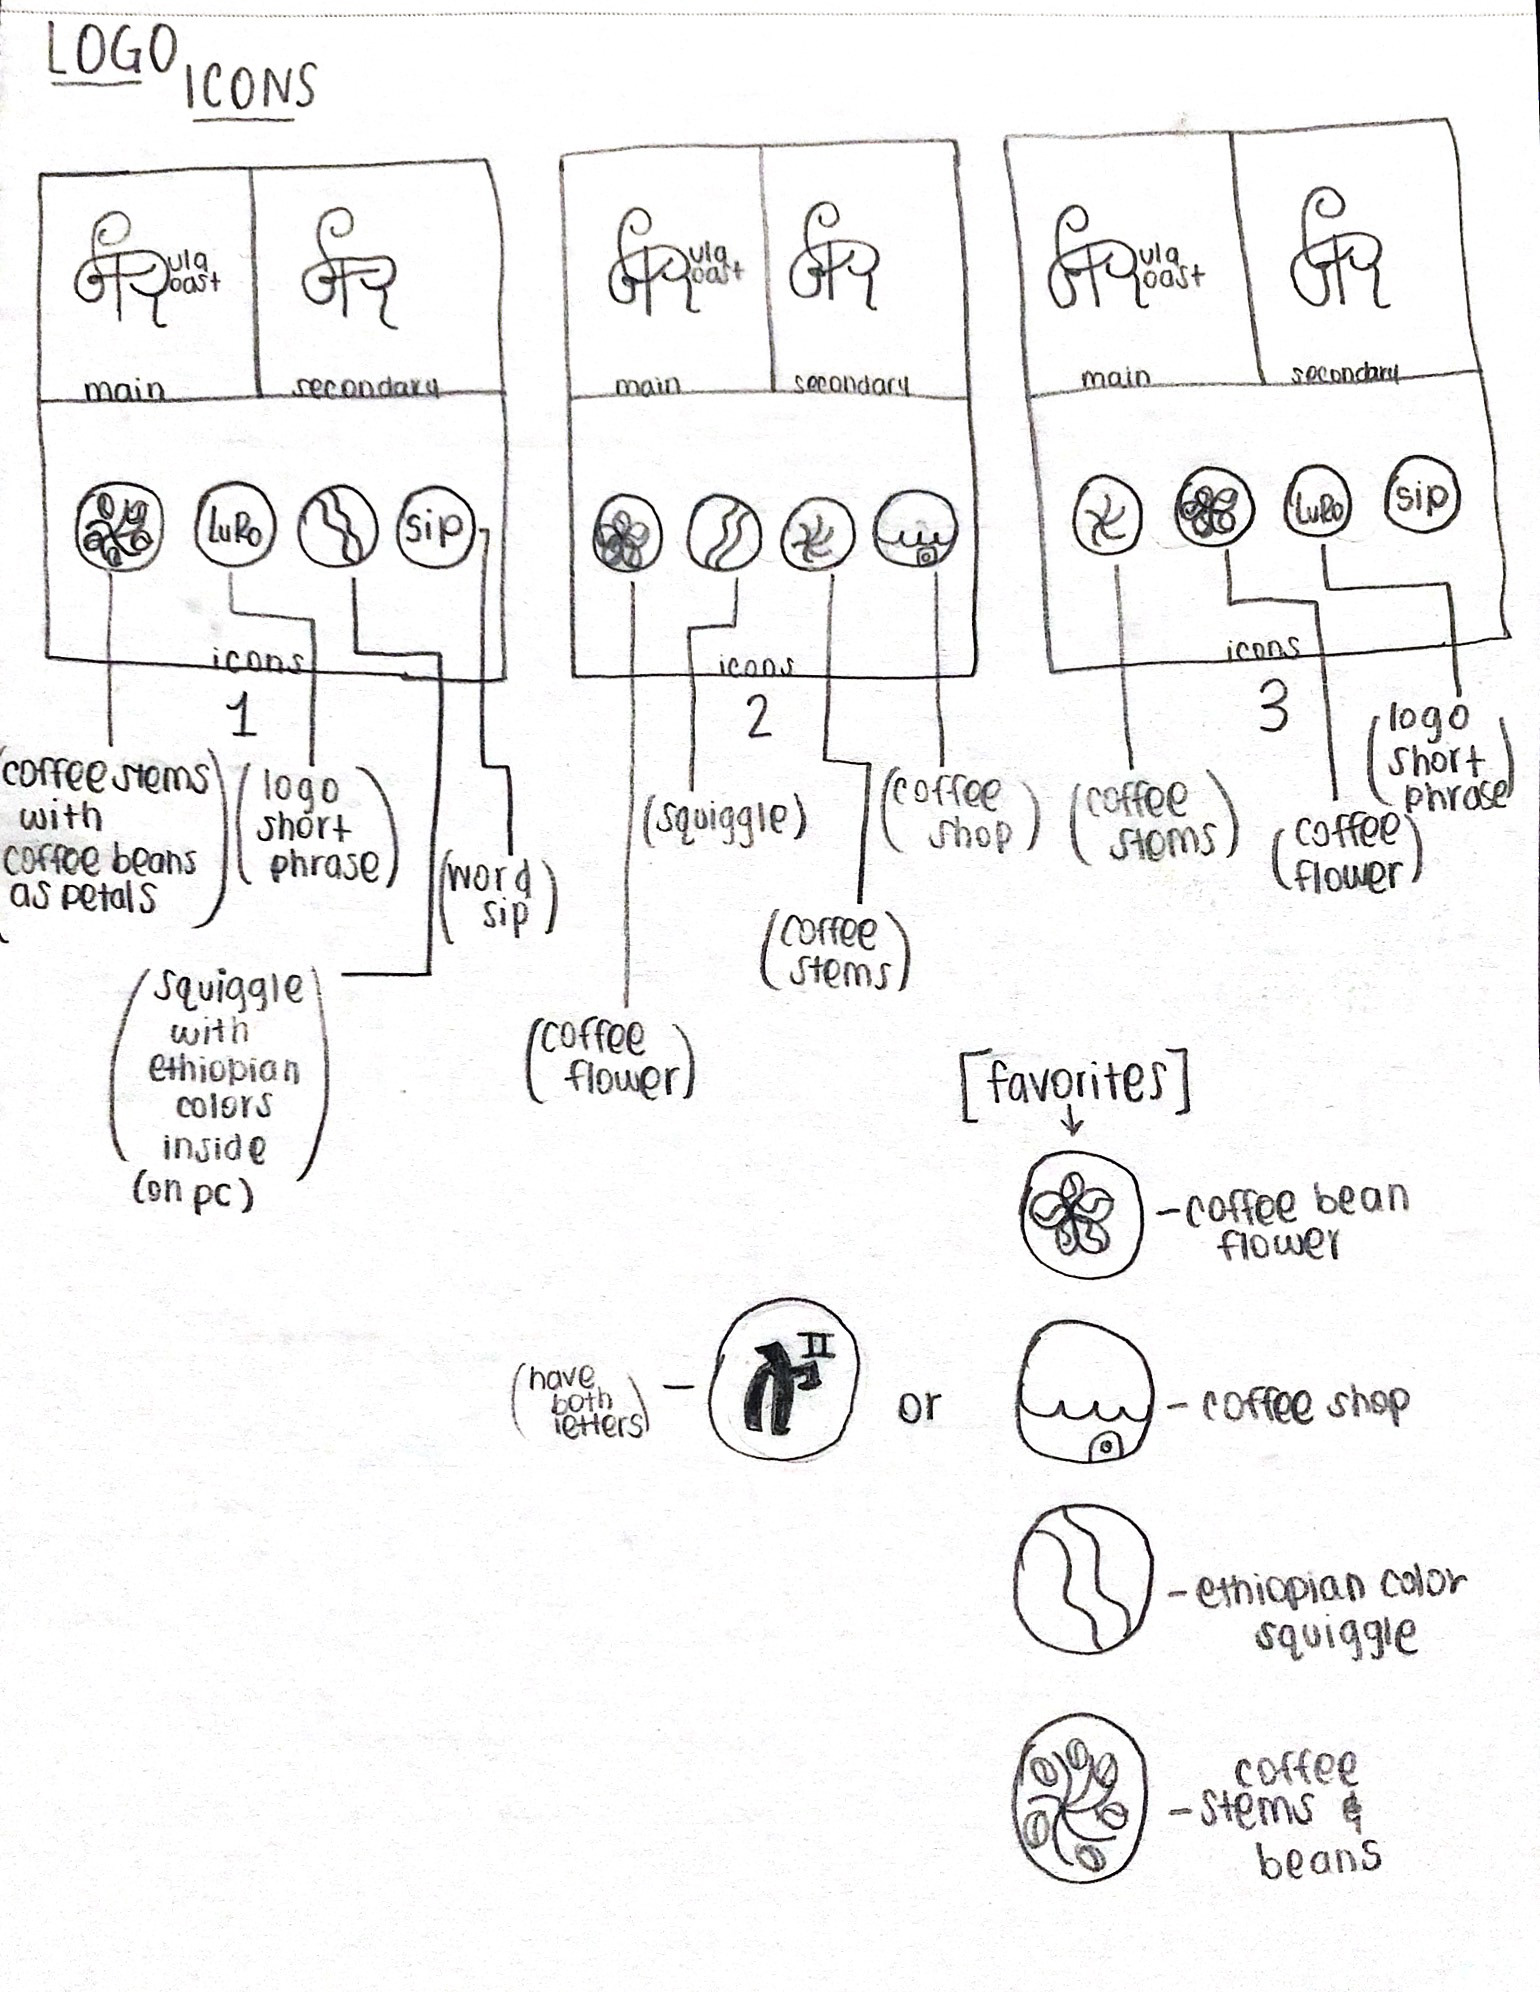 LOGO
ICONS
ula
oast
main
secondary
LuRo
sip
icons
1
ula
oast
main
secondary
icons
2
ula
oast
main
secondary
LuRo
sip
icons
3
(coffee stems
with
coffee beans
as petals)
(logo
short
phrase)
(word
sip)
(squiggle
with
ethiopian
colors
inside
(on pc)
(squiggle)
(coffee
shop)
(coffee
stems)
(coffee
flower)
(coffee
stems)
(coffee
flower)
(logo
short
phrase)
[favorites]
↓
-coffee bean
flower
(have
both
letters) -
II
or
- coffee shop
-ethiopian color
squiggle
coffee
-stems &
beans